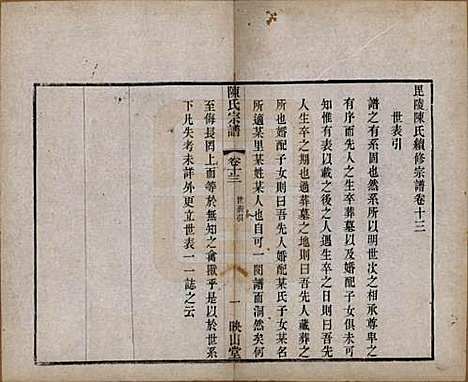 毘陵陳氏續修宗譜卷十三
世表引
譜之有系固也然系所以明世次之相承尊卑之
有序而人之享年生卒葬墓以及婚配子女俱未可
知惟有表以載之後之人遇生卒之日則曰吾先
人生卒之期也過葬墓之地則曰吾先人藏葬之
所也婚配子女則曰吾先人婚配某氏子女某名
所適某里某姓某人也自可一閱譜而洞然矣何
至侮長罔上而等於無知之禽獸乎是以於世系
下凡失考未詳外更立世表一一誌之云
陳氏宗譜
卷十三
世表引
一
映山堂